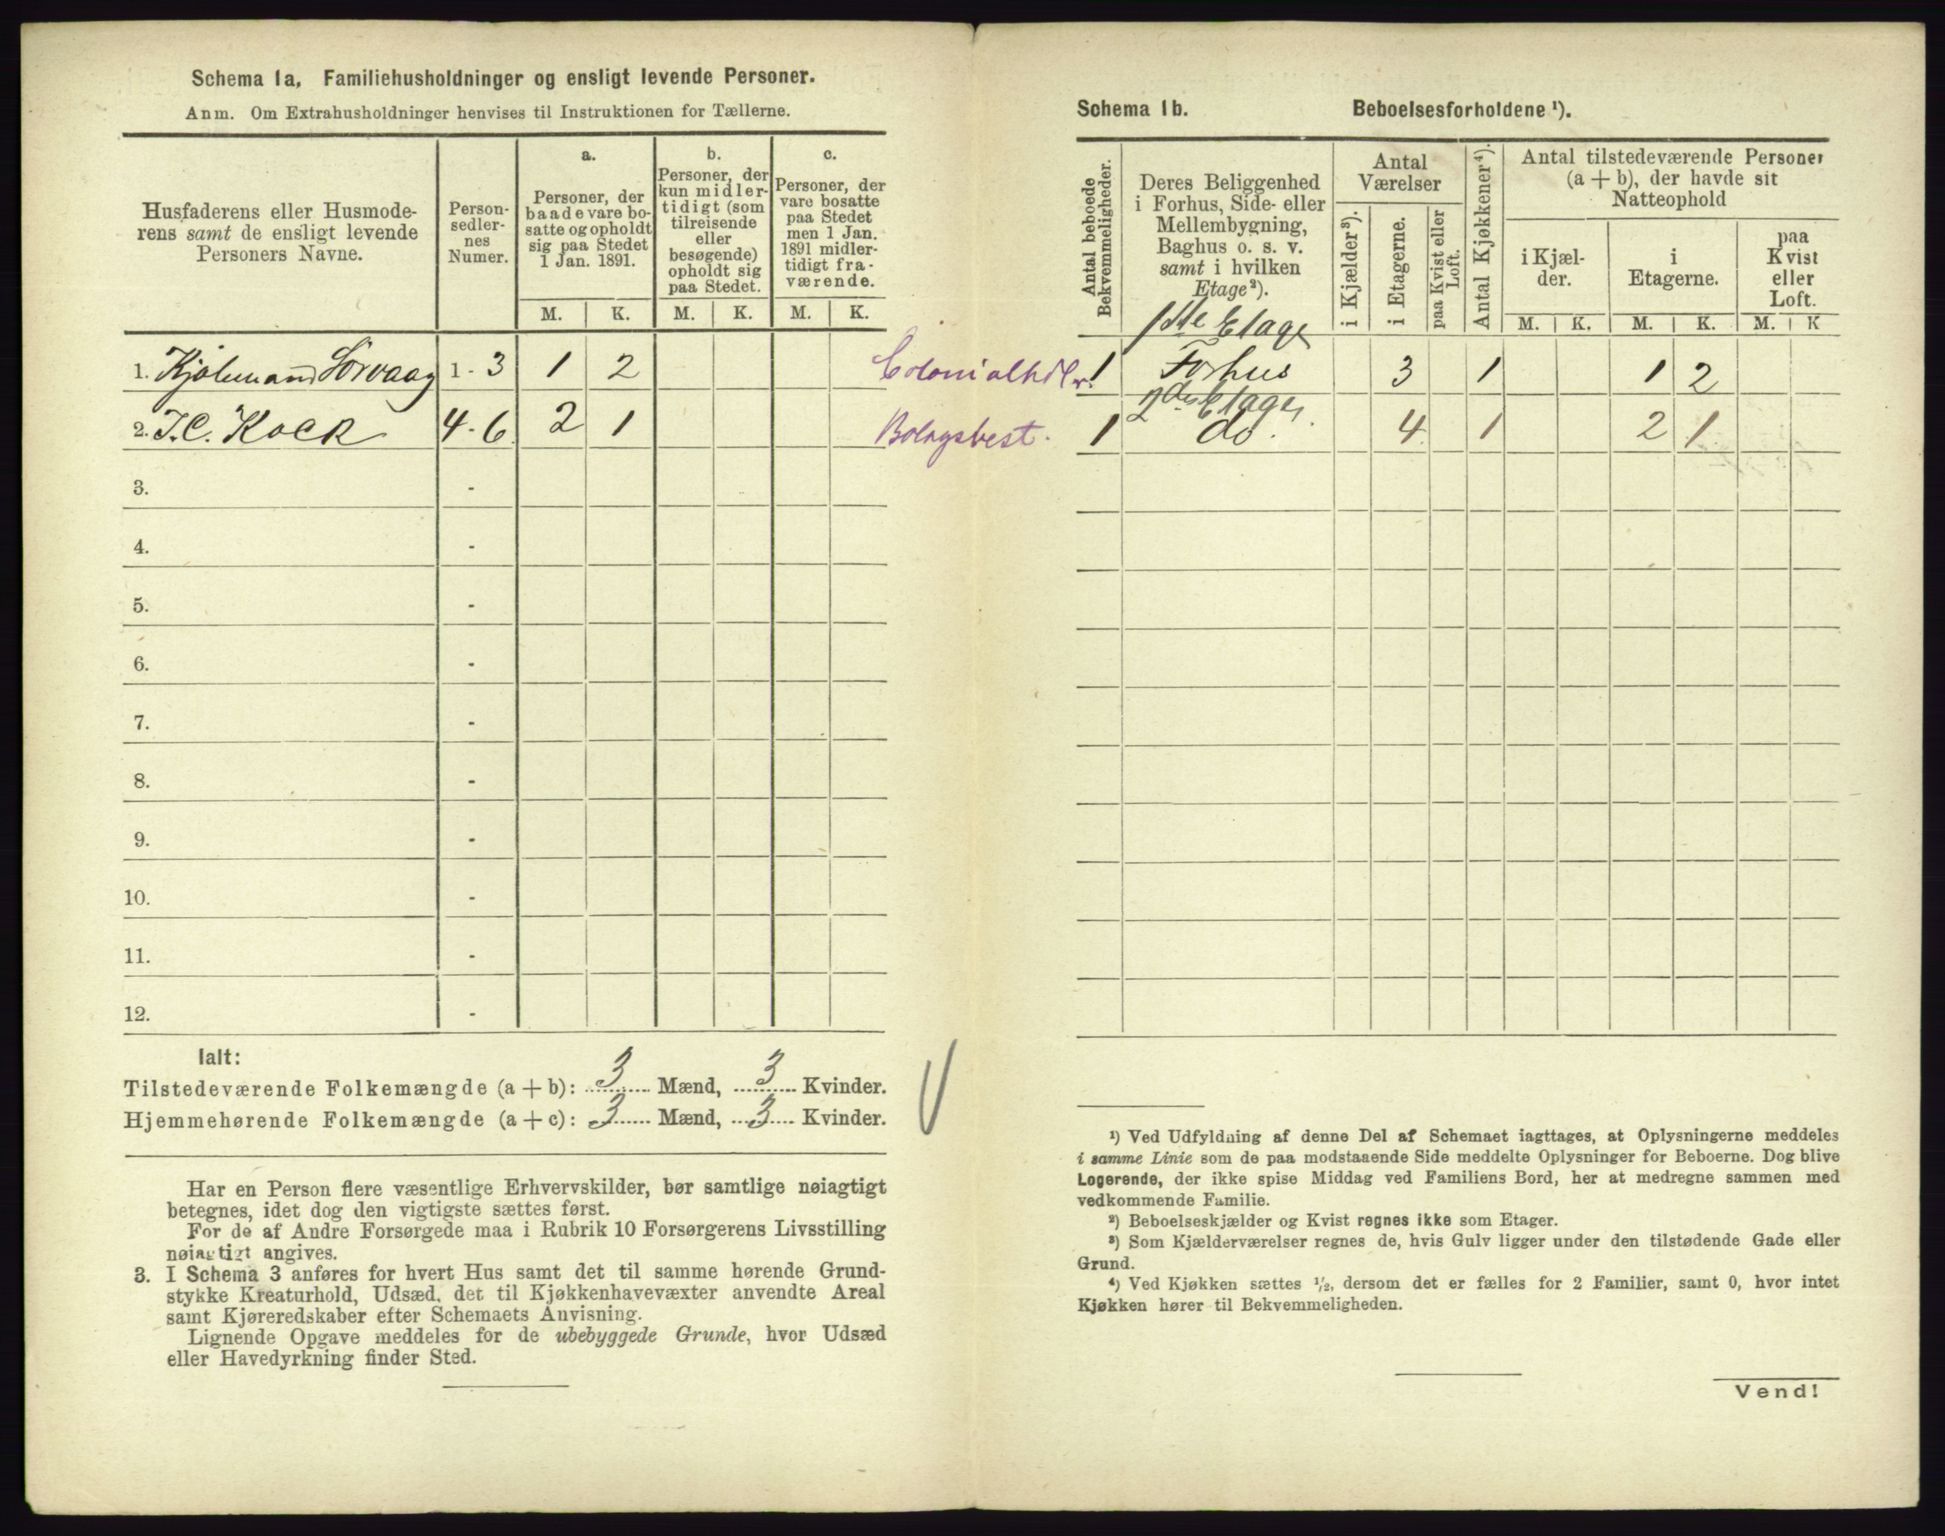 Schema 1a, Familiehusholdninger og ensligt levende Personer.
Anm. Om Extrahusholdninger henvises til Instruktionen for Tællerne.
Husfaderens eller Husmode-
rens samt de ensligt levende
Personers Navne.
Person-
sedler-
nes
Numer.
a.
Personer, der
baade vare bo-
satte og opholdt
sig paa Stedet
1 Jan. 1891.
b.
Personer, der
kun midler-
tidigt (som
tilreisende
eller
besøgende)
opholdt sig
paa Stedet.
c.
Personer, der
vare bosatte
paa Stedet
men 1 Jan.
1891 midler-
tidigt fra-
værende.
M. K. M. K. M. K.
1. Kjøbmand Sörvaag 1 - 3 1 2 Colonialhdlr.
2. J.C. Kock 4 - 6 2 1
3. -
4. -
5. -
6. -
7. -
8. -
9. -
10. -
11. -
12. -
Ialt:
Tilstedeværende Folkemængde (a + b): 3 Mænd, 3 Kvinder.
Hjemmehørende Folkemængde (a + c): 3 Mænd, 3 Kvinder.
Har en Person flere væsentlige Erhvervskilder, bør samtlige nøiagtigt
betegnes, idet dog den vigtigste sættes først.
For de af Andre Forsørgede maa i Rubrik 10 Forsørgerens Livsstilling
nøiagtigt angives.
3. I Schema 3 anføres for hvert Hus samt det til samme hørende Grund-
stykke Kreaturhold, Udsæd, det til Kjøkkenhavevæxter anvendte Areal
samt Kjøreredskaber efter Schemaets Anvisning.
Lignende Opgave meddeles for de ubebyggede Grunde, hvor Udsæd
eller Havedyrkning finder Sted.
Schema 1b. Beboelsesforholdene ¹).
Antal beboede
Bekvemmeligheder.
Deres Beliggenhed
i Forhus, Side- eller
Mellembygning,
Baghus o. s. v.
samt i hvilken
Etage²).
Antal
Værelser
i Kjælder³).
i Etagerne.
paa Kvist eller
Loft.
Antal Kjøkkener⁴).
Antal tilstedeværende Personer
(a + b), der havde sit
Natteophold
i Kjæl-
der.
i
Etagerne.
paa
Kvist
eller
Loft.
M. K. M. K. M. K
1ste Etage
1 Forhus 3 1 1 2
2den Etage
1 do. 4 1 2 1
¹) Ved Udfyldning af denne Del af Schemaet iagttages, at Oplysningerne meddeles
i samme Linie som de paa modstaaende Side meddelte Oplysninger for Beboerne. Dog blive
Logerende, der ikke spise Middag ved Familiens Bord, her at medregne sammen med
vedkommende Familie.
²) Beboelseskjælder og Kvist regnes ikke som Etager.
³) Som Kjælderværelser regnes de, hvis Gulv ligger under den tilstødende Gade eller
Grund.
⁴) Ved Kjøkken sættes ½, dersom det er fælles for 2 Familier, samt 0, hvor intet
Kjøkken hører til Bekvemmeligheden.
Vend!